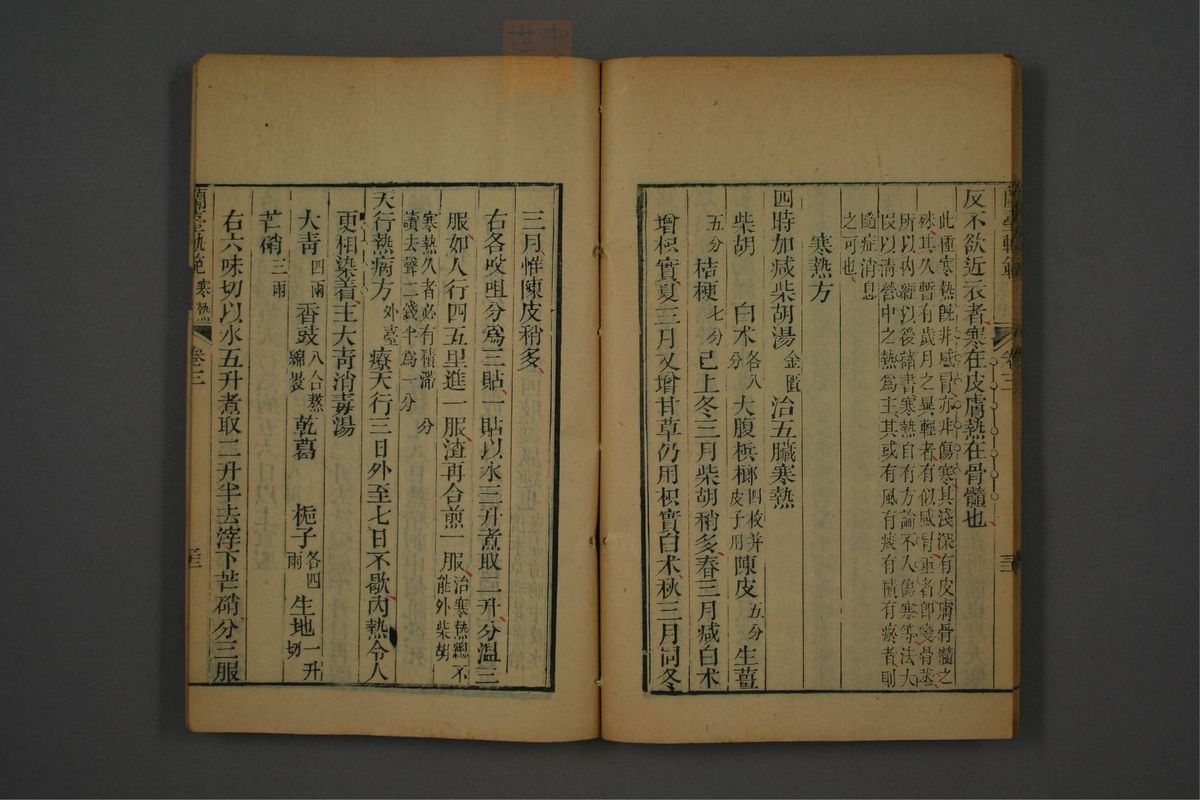 反不欲近衣者寒在皮膚熱在骨髓也
此種寒熱旣非感冒亦非傷寒其淺深有皮膚骨髓之
殊其久暫有歲月之異輕者有似感冒重者卽變骨蒸
所以內經以後諸書寒熱自有方論不入傷寒等法大
段以清營中之熱爲主其或有風有痰有積有瘀者則
隨症消息
之可也
寒熱方
四時加减柴胡湯金匱治五臟寒熱
柴胡 白术各八分大腹梹榔四枚并皮子用陳皮五分生薑
五分桔梗七分已上冬三月柴胡稍多春三月减白术
增枳實夏三月又增甘草仍用枳實白术秋三月同冬
三月惟陳皮稍多
右各㕮咀分爲三貼一貼以水三升煮取二升分温三
服如人行四五里進一服渣再合煎一服治寒熱總不能外柴胡
寒熱久者必有積滯 分
讀去聲二錢半爲一分
天行熱病方外臺療天行三日外至七日不歇內熱令人
更相染着主大青消毒湯
大青四兩香豉八合熬綿褁乾葛 梔子各四兩生地一升切
芒硝三兩
右六味切以水五升煮取二升半去滓下芒硝分三服
蘭臺軌範 寒熱 卷三
蘭臺軌範 卷三